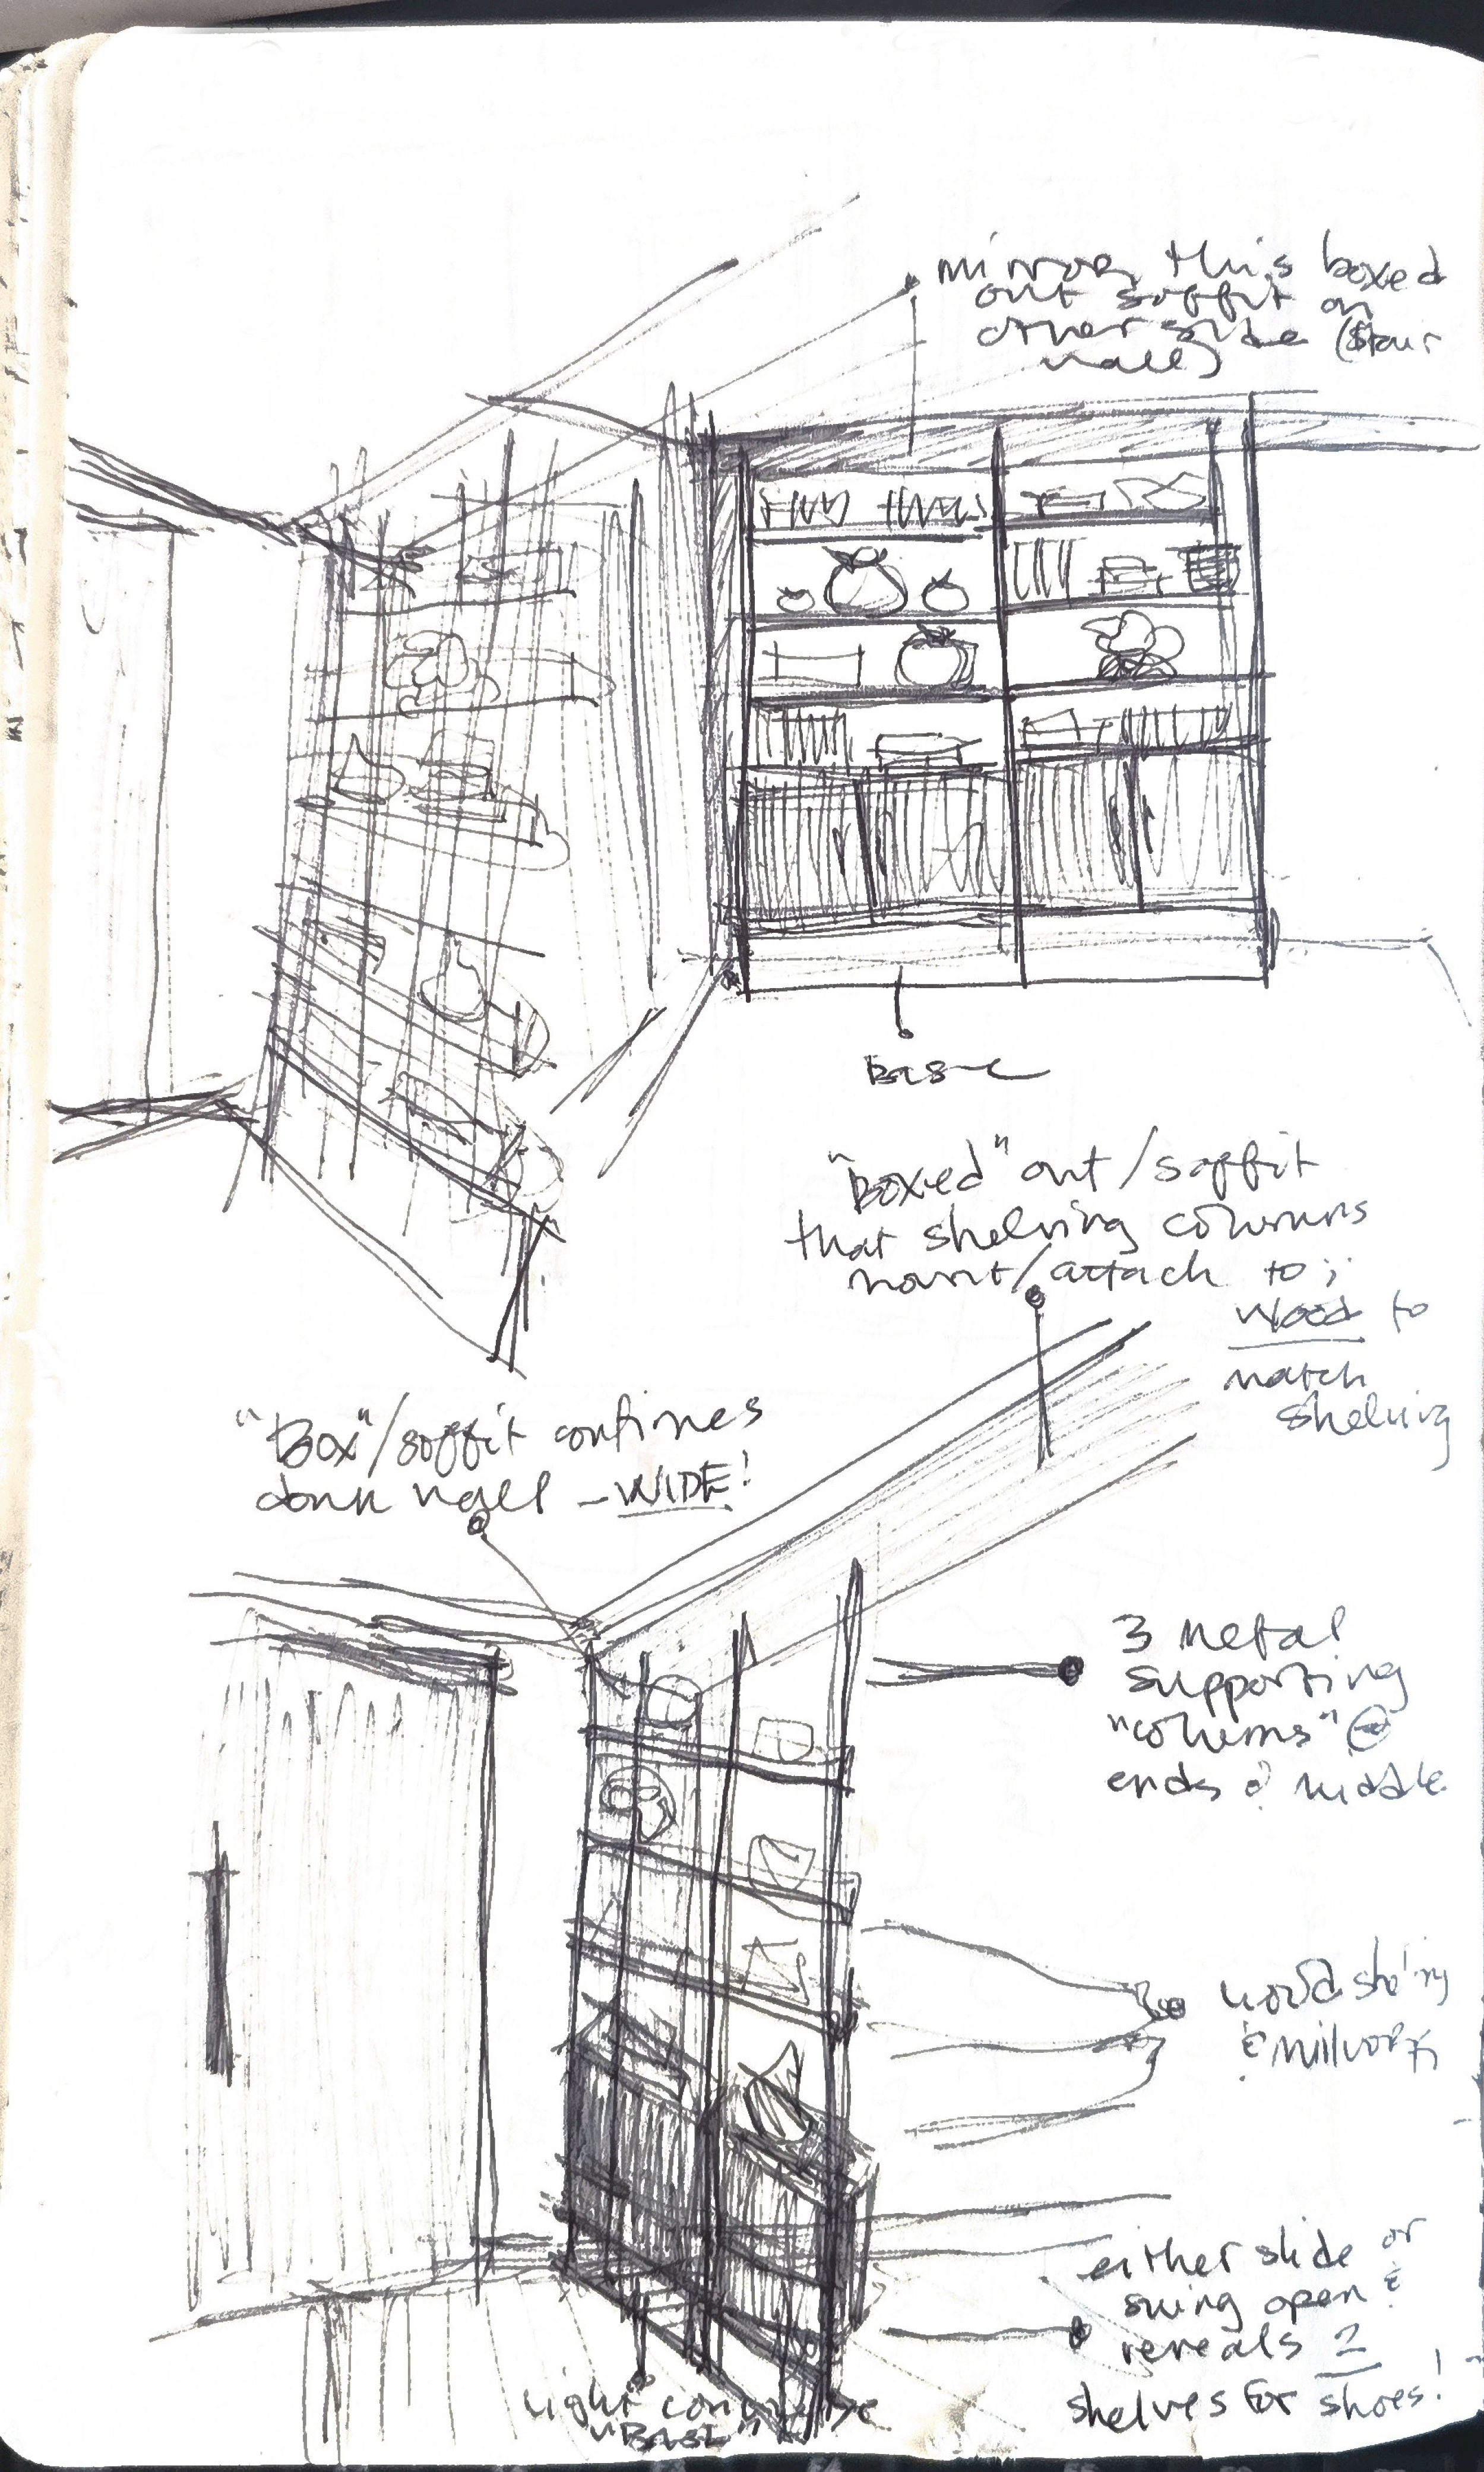 mirror this boxed
out soffit on
other side (stair
wall)
Base
"Boxed" out/soffit
that shelving columns
mount/attach to;
wood to
match
shelving
"Box"/soffit continues
down wall - WIDE!
3 metal
supporting
"columns" @
ends & middle
wood shelving
& millwork
either slide or
swing open &
reveals 2
shelves for shoes!
light
"BASE"